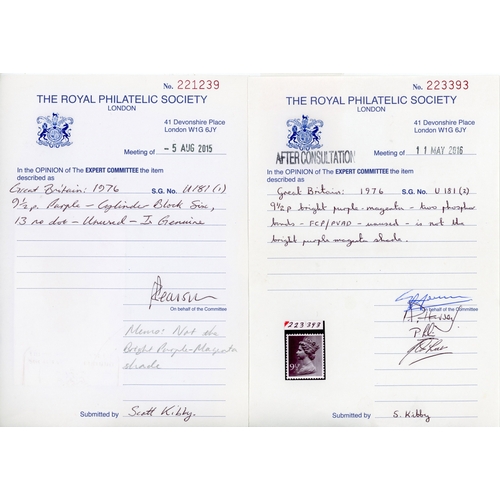 No. 221239
THE ROYAL PHILATELIC SOCIETY
LONDON
41 Devonshire Place
London W1G 6JY
Meeting of - 5 AUG 2015
In the OPINION of The EXPERT COMMITTEE the item
described as
Great Britain: 1976 S.G. No. U181(1)
9½p Purple - Cylinder Block Six,
13 no dot - Unused - Is Genuine
On behalf of the Committee
Memo: Not the
Bright Purple-Magenta
shade
Submitted by Scott Kibby.
No. 223393
THE ROYAL PHILATELIC SOCIETY
LONDON
41 Devonshire Place
London W1G 6JY
AFTER CONSULTATION
Meeting of 11 MAY 2016
In the OPINION of The EXPERT COMMITTEE the item
described as
Great Britain: 1976 S.G. No. U181(2)
9½p bright purple-magenta - two phosphor
bands - FCP/PVAD - unused - is not the
bright purple magenta shade.
On behalf of the Committee
223393
9½P
Submitted by S. Kibby